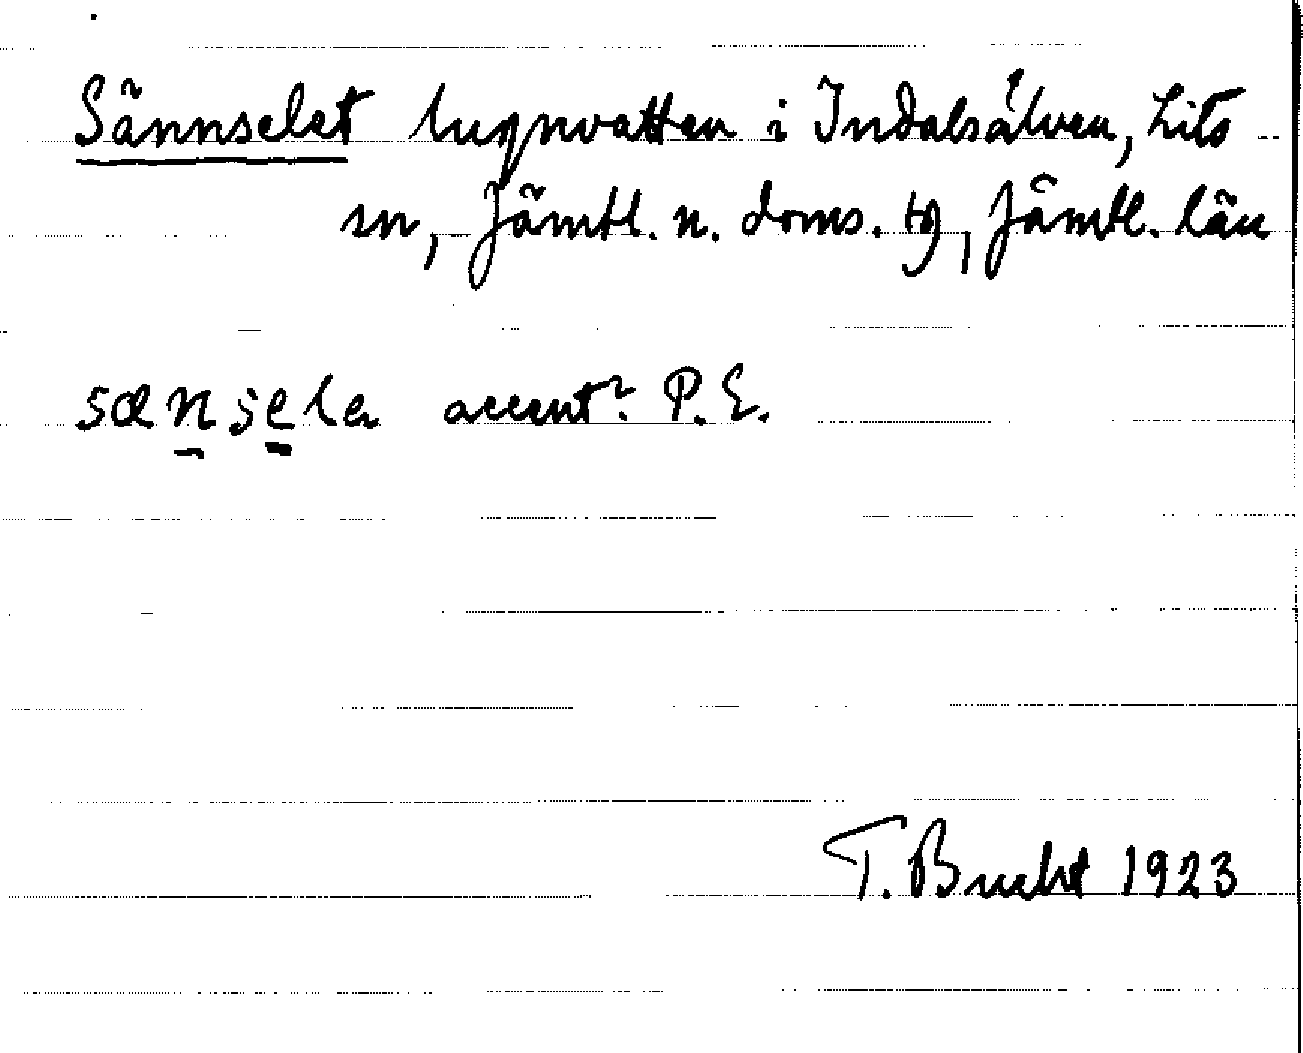 Sännselet lugnvatten i Indalsälven, Lits
sn, Jämtl. n. doms. tg, Jämtl. län
sænsela accent? P.E.
T. Bucht 1923